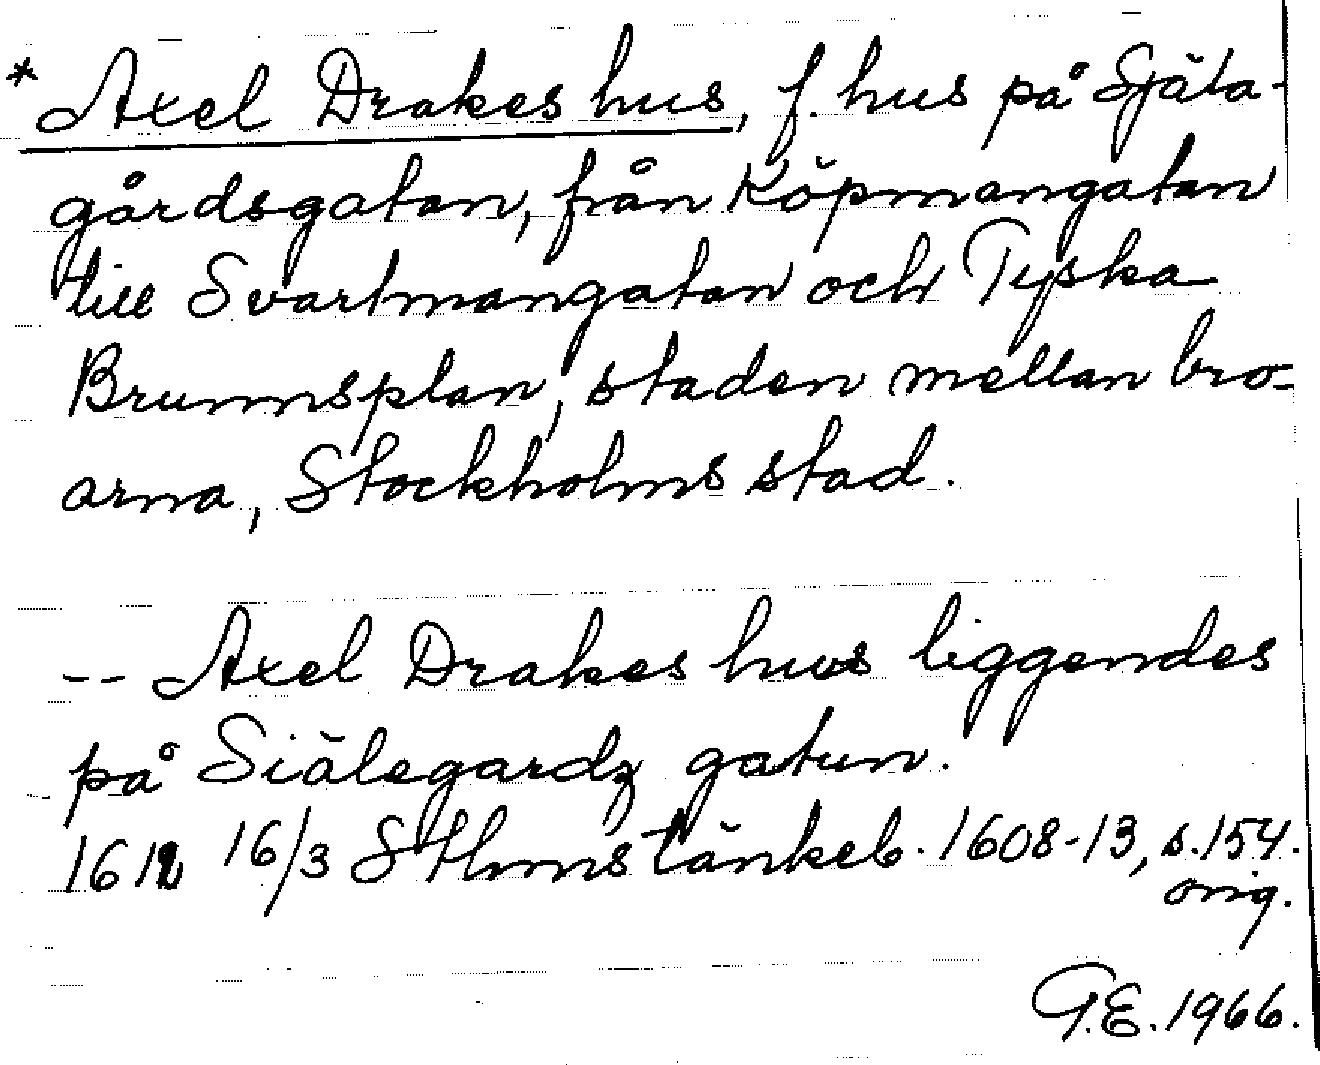 * Axel Drakes hus, f. hus på Själa-
gårdsgatan, från Köpmangatan
till Svartmangatan och Tyska
Brunnsplan, staden mellan bro-
arna, Stockholms stad.
-- Axel Drakes huus liggendes
på Siälegardz gatun.
16/3 Sthms tänkeb. 1608-13, s. 154.
orig.
G.E. 1966.